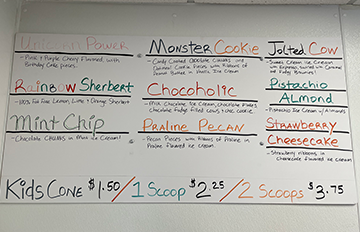 Unicorn Power
- Pink & Purple Cherry Flavored with
Birthday Cake pieces.
Rainbow Sherbert
- 100% Fat Free Lemon, Lime & Orange Sherbert
Mint Chip
- Chocolate Chunks in Mint Ice Cream!
Monster Cookie
- Candy Coated Chocolate Chunks and
Oatmeal Cookie Pieces with Ribbons of
Peanut Butter in Vanilla Ice Cream
Chocoholic
- Milk Chocolate Ice Cream, Chocolate Flakes,
Chocolate Fudge filled Cows, Choc Cookie
Praline Pecan
- Pecan Pieces with Ribbons of Praline in
Praline flavored ice cream
Jolted Cow
- Sweet Cream Ice Cream
with Espresso, Swirled with Caramel
and Fudgy Brownies!
Pistachio
Almond
- Pistachio Ice Cream w/ Almonds
Strawberry
Cheesecake
- Strawberry ribbons in
cheesecake flavored ice cream
Kids Cone $1.50 / 1 Scoop $2.25 / 2 Scoops $3.75